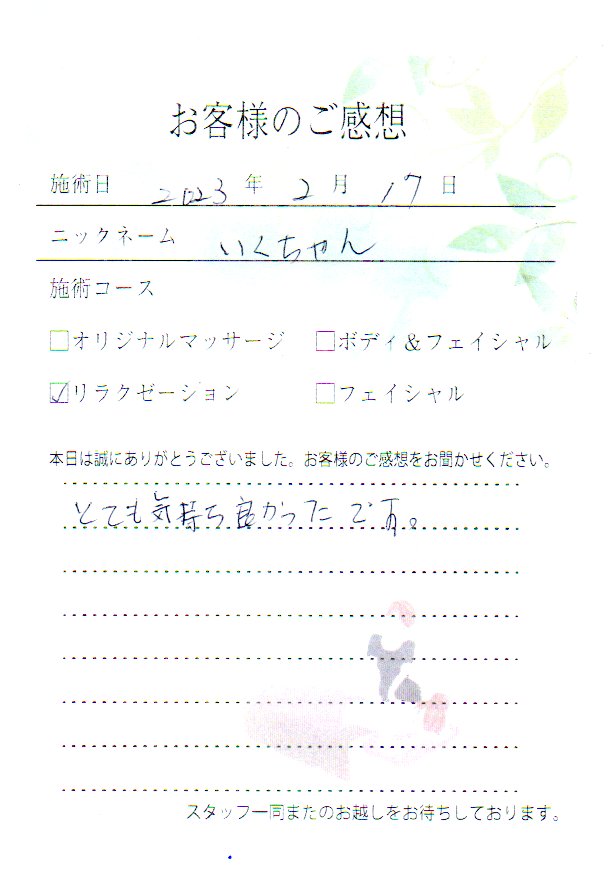 お客様のご感想
施術日 2023 年 2 月 17 日
ニックネーム いくちゃん
施術コース
□オリジナルマッサージ □ボディ&フェイシャル
☑リラクゼーション □フェイシャル
本日は誠にありがとうございました。お客様のご感想をお聞かせください。
とても気持ち良かったです。
スタッフ一同またのお越しをお待ちしております。